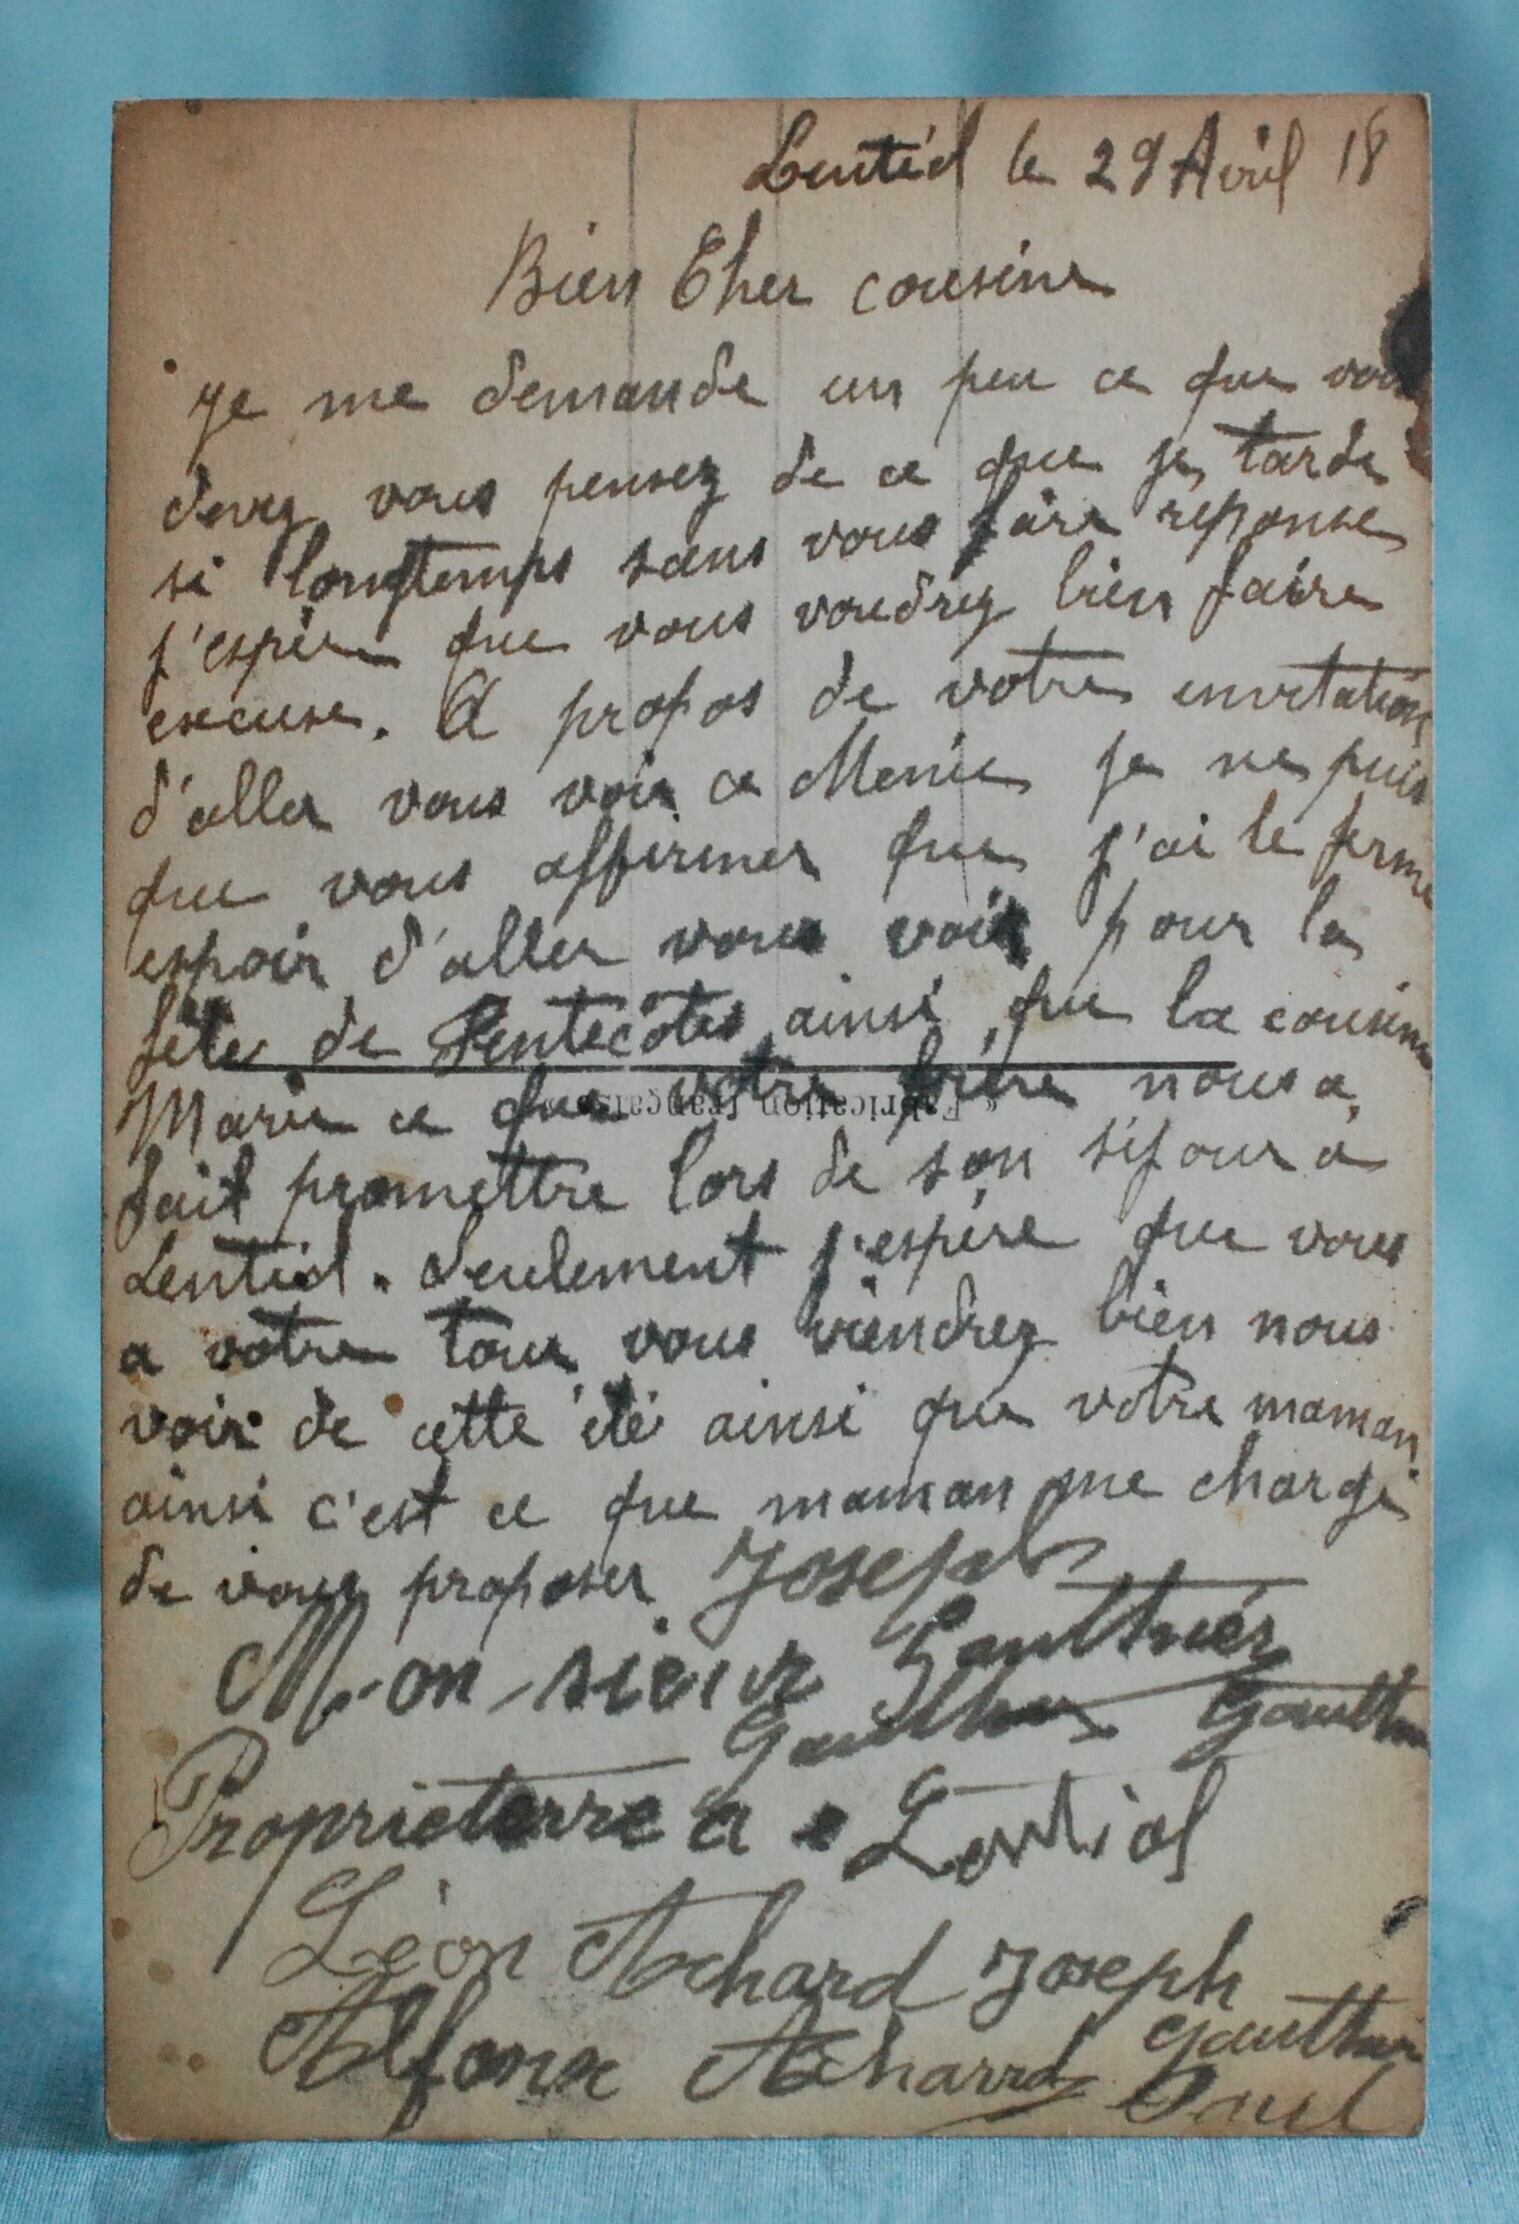 Lentiol le 29 Avril 18
Bien Cher cousine
Je me demande un peu ce que vous
devez vous pensez de ce que je tarde
si longtemps sans vous faire reponse
j'espère que vous voudrez bien faire
excuse. A propos de votre invitation
d'aller vous voir ce Menie je ne puis
que vous affirmer que j'ai le ferme
espoir d'aller vous voir pour la
fête de Pentecôtes ainsi que la cousine
Marie ce que votre frère nous a
"Fabrication française"
fait promettre lors de son séjour à
Lentiol. Seulement j'espère que vous
a votre tour vous viendrez bien nous
voir de cette été ainsi que votre maman
ainsi c'est ce que maman me charge
de vous proposer Joseph
Mon-sieur Gauthier
Gauthier Gauthier
Proprieterre a Lentiol
Léon Achard Joseph
Alfonse Acharrd Gauthier
Paul